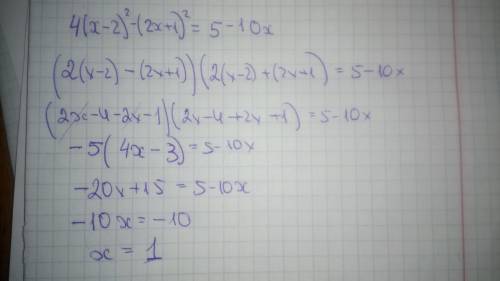 4(x-2)²-(2x+1)²= 5-10x
(2(x-2)-(2x+1))(2(x-2)+(2x+1) = 5-10x
(2x-4-2x-1)(2x-4+2x+1) = 5-10x
-5(4x-3)=5-10x
-20x+15 = 5-10x
-10x = -10
x = 1